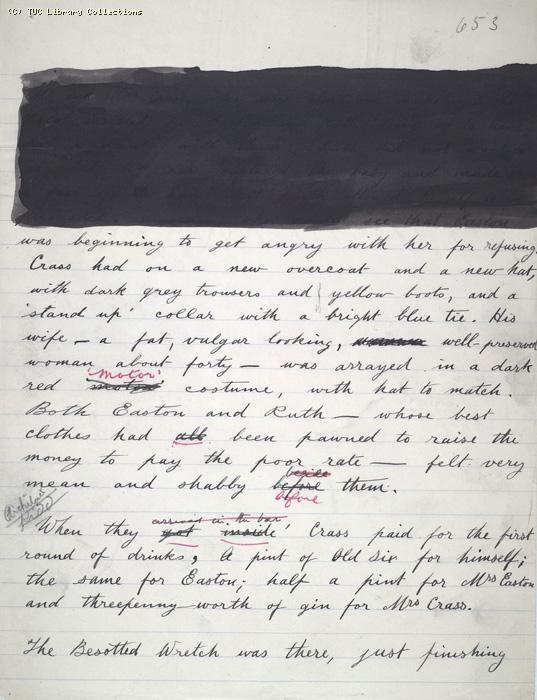 (C) TUC Library Collections
653
see that Easton
was beginning to get angry with her for refusing.
Crass had on a new overcoat and a new hat,
with dark grey trowsers and yellow boots, and a
'stand up' collar with a bright blue tie. His
wife – a fat, vulgar looking, well-preserved
woman about forty – was arrayed in a dark
'Motor'
red motor costume, with hat to match.
Both Easton and Ruth – whose best
clothes had all been pawned to raise the
money to pay the poor rate — felt very
beside
mean and shabby before them.
before
arrived in the bar
When they got inside' Crass paid for the first
round of drinks, A pint of Old Six for himself;
the same for Easton; half a pint for Mrs Easton
and threepenny worth of gin for Mrs Crass.
The Besotted Wretch was there, just finishing